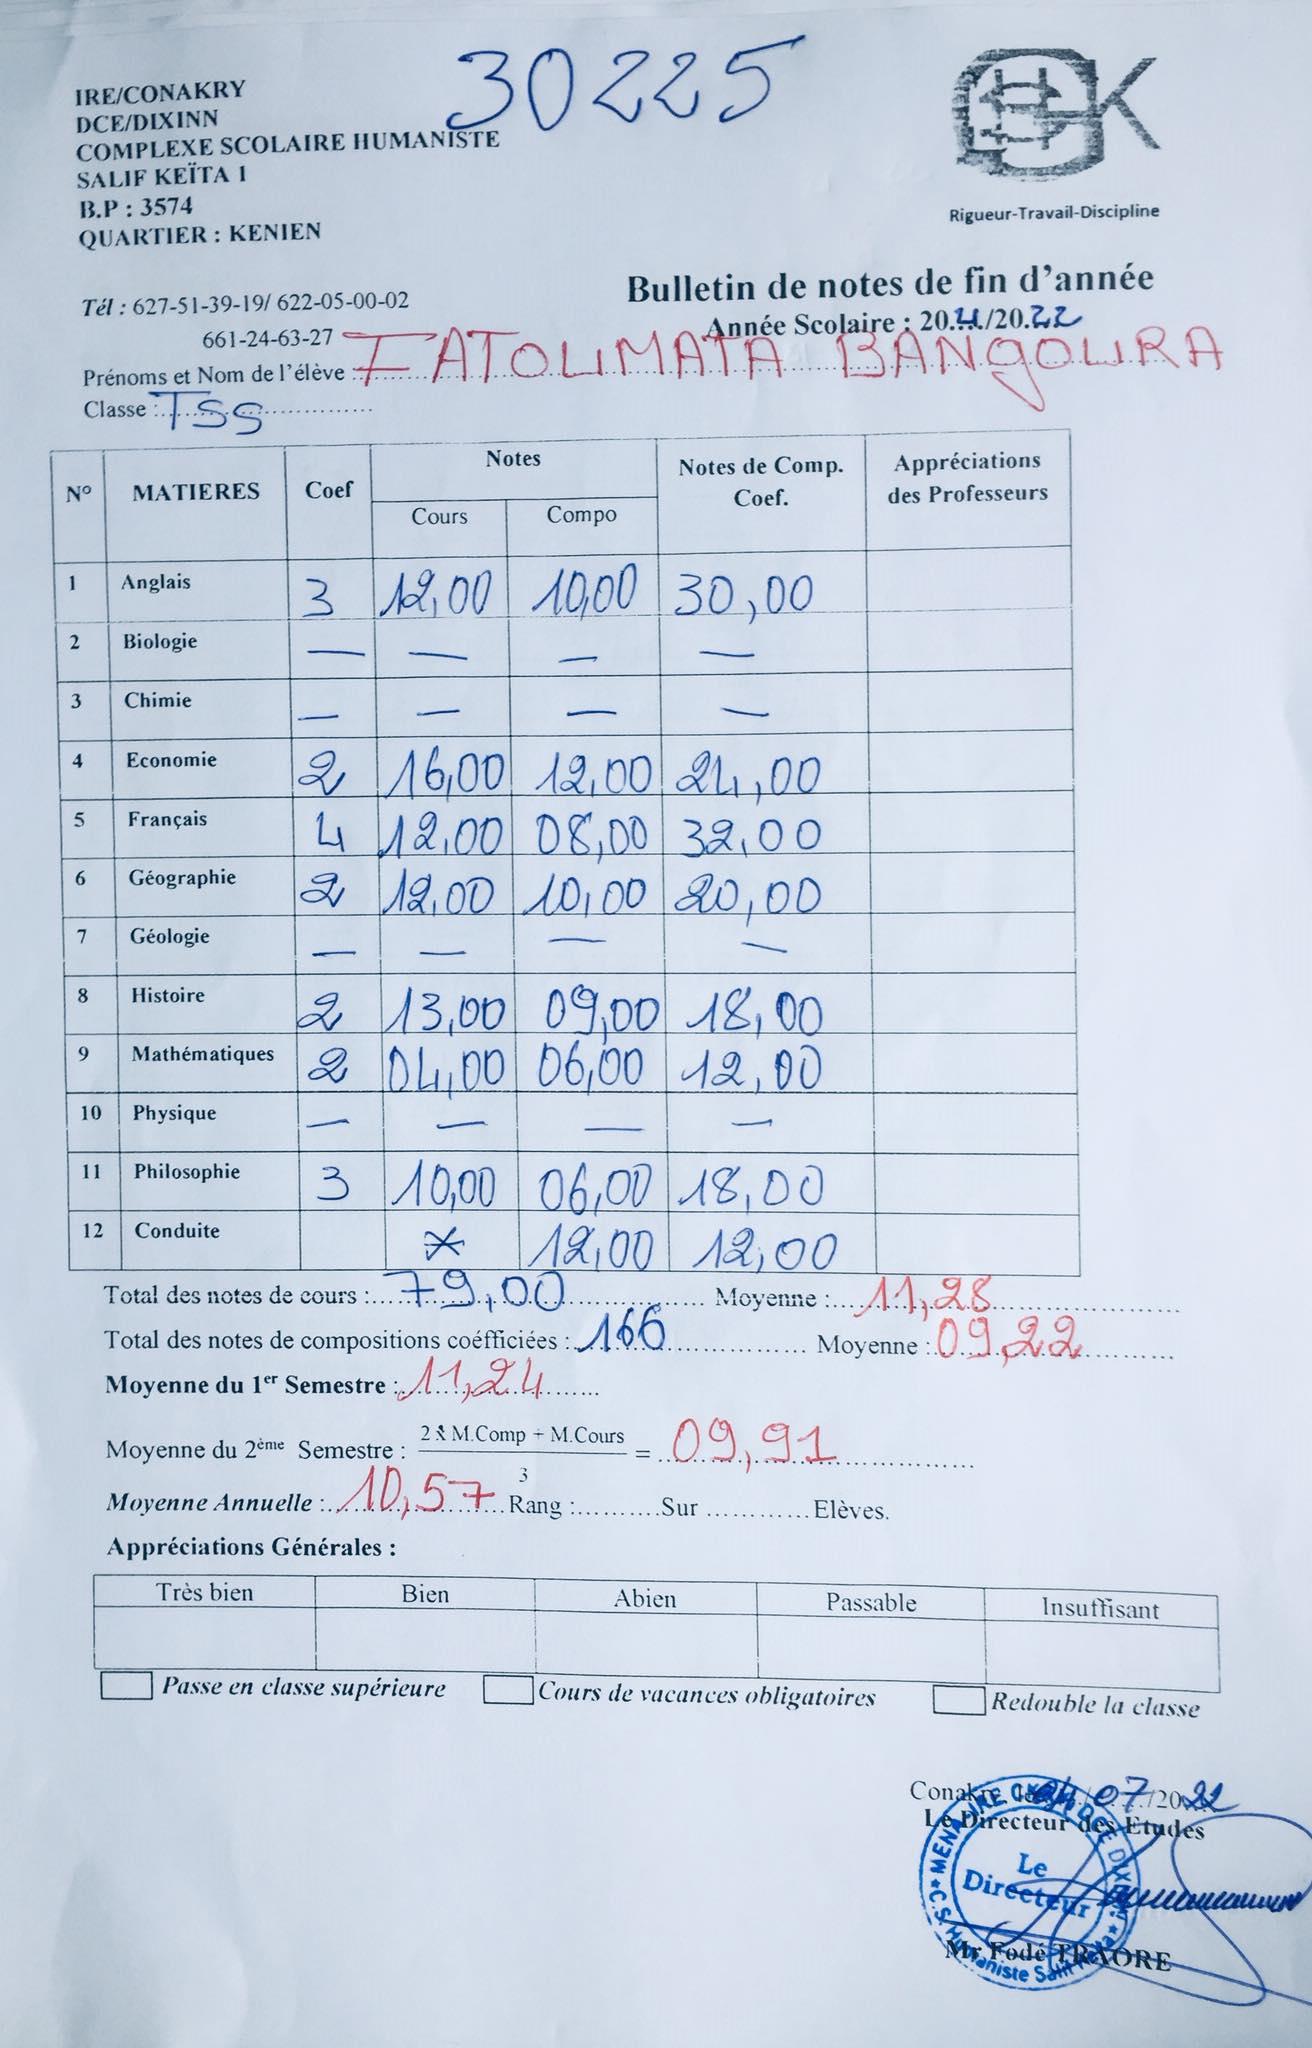 30225
IRE/CONAKRY
DCE/DIXINN
COMPLEXE SCOLAIRE HUMANISTE
SALIF KEÏTA 1
B.P : 3574
QUARTIER : KENIEN
Rigueur-Travail-Discipline
Tél : 627-51-39-19/ 622-05-00-02
661-24-63-27
Bulletin de notes de fin d'année
Année Scolaire : 2021/2022
Prénoms et Nom de l'élève : FATOUMATA BANGOURA
Classe : TSS
N° MATIERES Coef Notes Notes de Comp. Coef. Appréciations des Professeurs
Cours Compo
1 Anglais 3 12,00 10,00 30,00
2 Biologie — — — —
3 Chimie — — — —
4 Economie 2 16,00 12,00 24,00
5 Français 4 12,00 08,00 32,00
6 Géographie 2 12,00 10,00 20,00
7 Géologie — — — —
8 Histoire 2 13,00 09,00 18,00
9 Mathématiques 2 04,00 06,00 12,00
10 Physique — — — —
11 Philosophie 3 10,00 06,00 18,00
12 Conduite * 12,00 12,00
Total des notes de cours : 79,00 Moyenne : 11,28
Total des notes de compositions coéfficiées : 166 Moyenne : 09,22
Moyenne du 1er Semestre : 11,24
Moyenne du 2ème Semestre : 2 x M.Comp + M.Cours / 3 = 09,91
Moyenne Annuelle : 10,57 Rang :.......... Sur .......... Elèves.
Appréciations Générales :
Très bien Bien Abien Passable Insuffisant
Passe en classe supérieure Cours de vacances obligatoires Redouble la classe
Conakry, le /07/2022
Le Directeur des Etudes
Le Directeur
Mr Fodé TRAORE